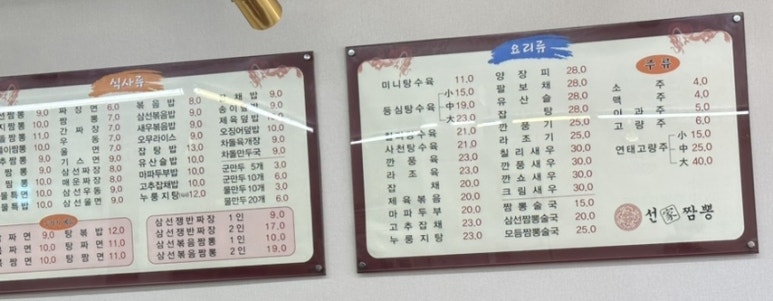 식사류
짬뽕 9.0
짬뽕 9.0
짬뽕 11.0
짬뽕 10.0
짬뽕 9.0
짬뽕 10.0
물특면 10.0
물특밥 10.0
짜장면 6.0
간짜장 7.0
우동 7.0
울면 7.0
기스면 9.0
삼선짜장 8.0
매운짜장 8.0
삼선우동 9.0
삼선울면 9.0
볶음밥 8.0
삼선볶음밥 9.0
새우볶음밥 9.0
오무라이스 9.0
잡탕밥 13.0
유산슬밥 13.0
마파두부밥 10.0
고추잡채밥 10.0
누룽지탕 12.0
잡채밥 9.0
송이덮밥 9.0
제육덮밥 9.0
오징어덮밥 10.0
차돌육개장 9.0
차돌만두국 9.0
군만두 5개 3.0
군만두 10개 6.0
물만두 10개 3.0
물만두 20개 6.0
짜면 9.0
짜면 10.0
짬면 10.0
탕볶밥 12.0
탕짜면 11.0
탕짬면 12.0
삼선쟁반짜장 1인 9.0
삼선쟁반짜장 2인 17.0
삼선볶음짬뽕 1인 10.0
삼선볶음짬뽕 2인 19.0
요리류
미니탕수육 11.0
등심탕수육 小 15.0
中 19.0
大 23.0
탕수육 21.0
사천탕수육 21.0
깐풍육 23.0
라조육 23.0
잡채 20.0
제육볶음 23.0
마파두부 20.0
고추잡채 23.0
누룽지탕 23.0
양장피 28.0
팔보채 28.0
유산슬 28.0
잡탕 28.0
깐풍기 25.0
라조기 25.0
칠리새우 30.0
깐풍새우 30.0
깐쇼새우 30.0
크림새우 30.0
짬뽕술국 15.0
삼선짬뽕술국 20.0
모듬짬뽕술국 25.0
주류
소주 4.0
맥주 4.0
이과두주 5.0
고량주 6.0
연태고량주 小 15.0
中 25.0
大 40.0
선家짬뽕